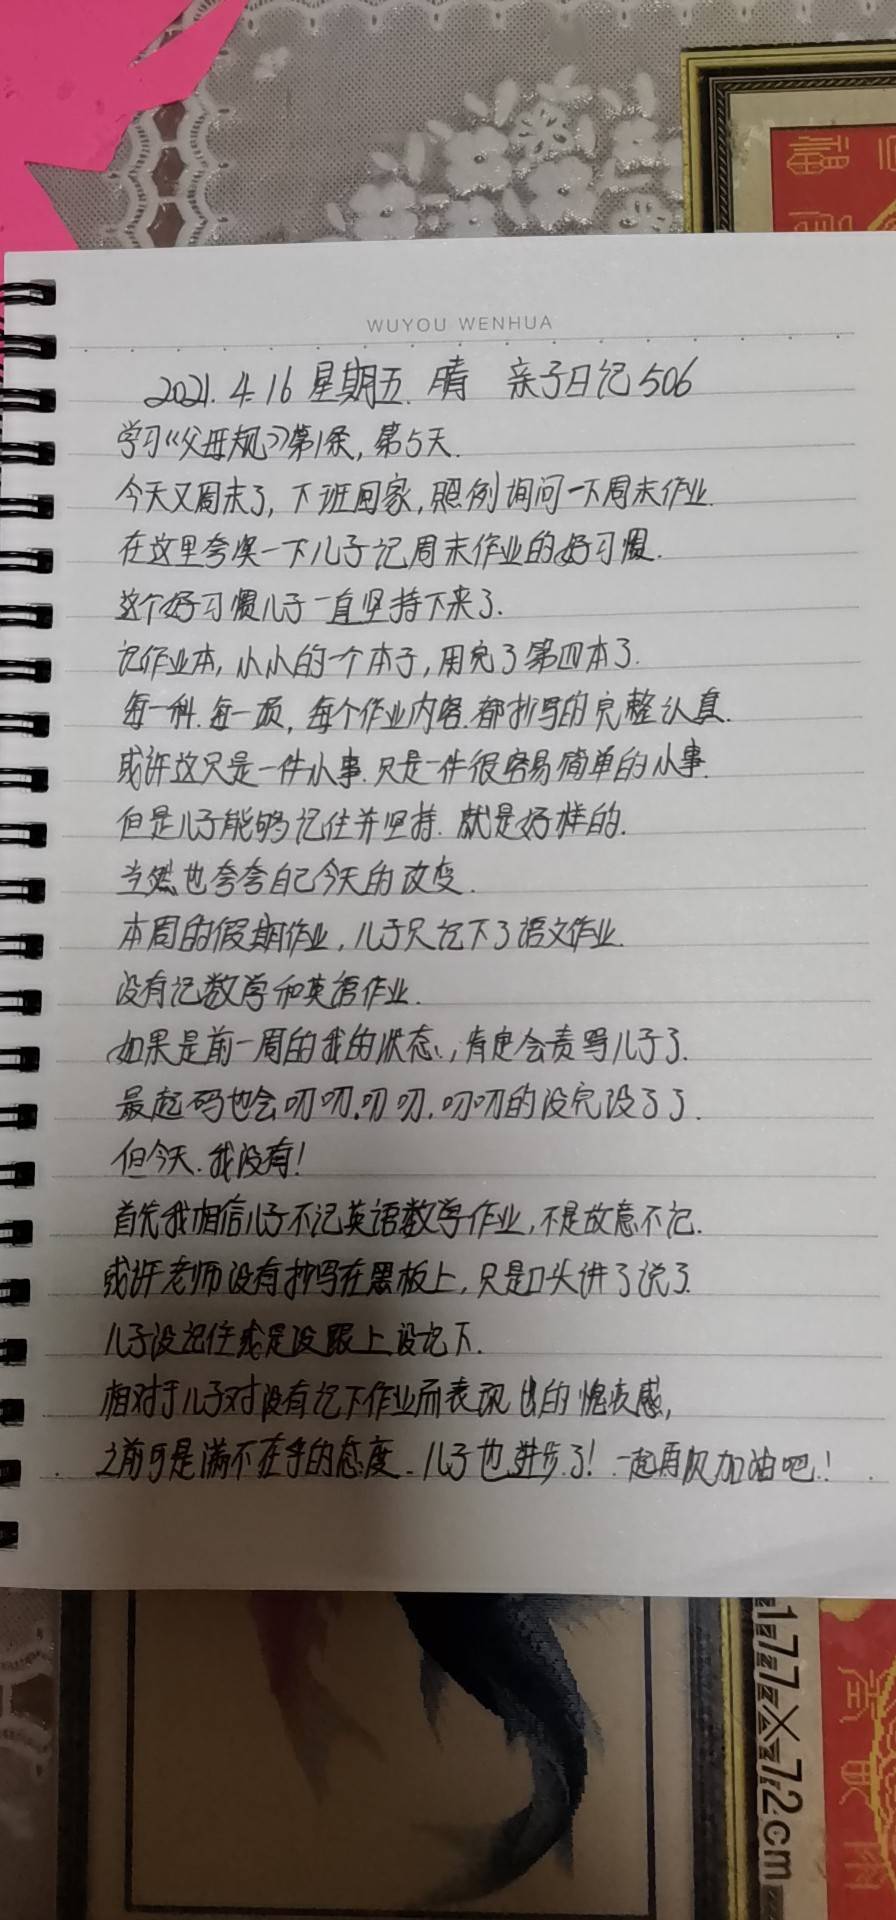 福
WUYOU WENHUA
2021.4.16 星期五. 晴 亲子日记506
学习《父母规》第1条,第5天.
今天又周末了,下班回家,照例询问一下周末作业.
在这里夸奖一下儿子记周末作业的好习惯.
这个好习惯儿子一直坚持下来了.
记作业本,小小的一个本子,用完了第四本了.
每一科.每一项,每个作业内容.都抄写的完整认真.
或许这只是一件小事.只是一件很容易简单的小事.
但是儿子能够记住并坚持.就是好样的.
当然也夸夸自己今天的改变.
本周的假期作业,儿子只记下了语文作业.
没有记数学和英语作业.
如果是前一周的我的状态,肯定会责骂儿子了.
最起码也会叨叨.叨叨.叨叨的没完没了了.
但今天.我没有!
首先我相信儿子不记英语数学作业,不是故意不记.
或许老师没有抄写在黑板上,只是口头讲了说了.
儿子没记住或是没跟上没记下.
相对于儿子对没有记下作业而表现出的愧疚感,
之前可是满不在乎的态度.儿子也进步了!一起再次加油吧!
177×72cm